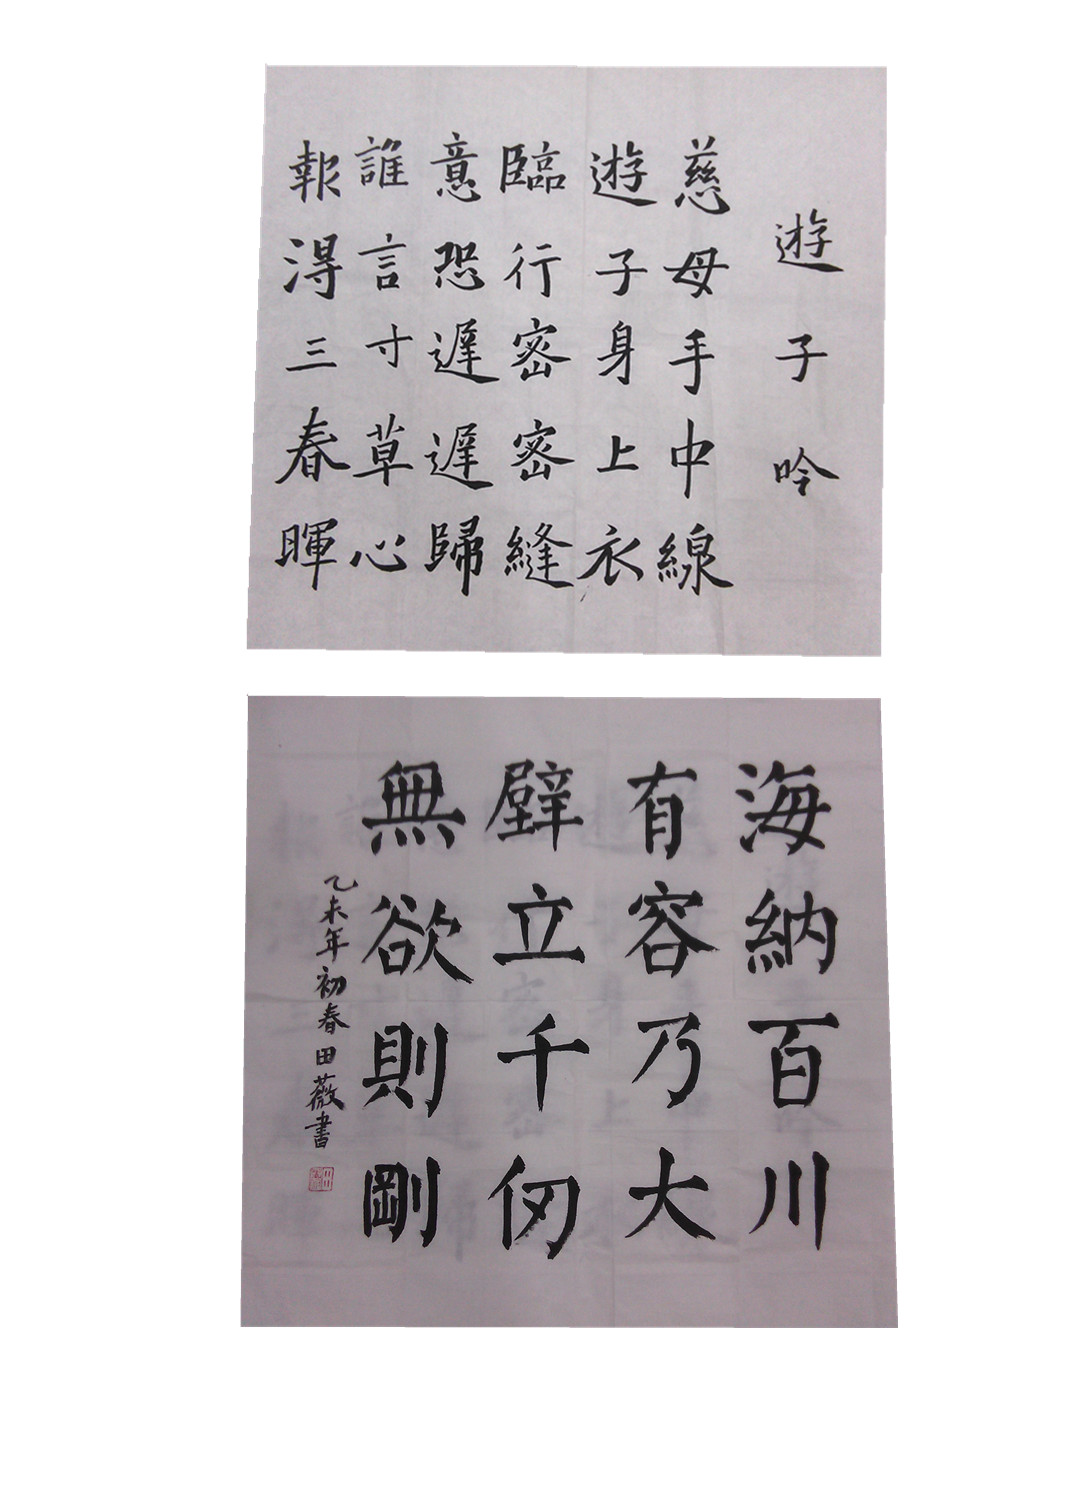 遊子吟
慈母手中線
遊子身上衣
臨行密密縫
意恐遲遲歸
誰言寸草心
報得三春暉
海納百川
有容乃大
壁立千仞
無欲則剛
乙未年初春田薇書